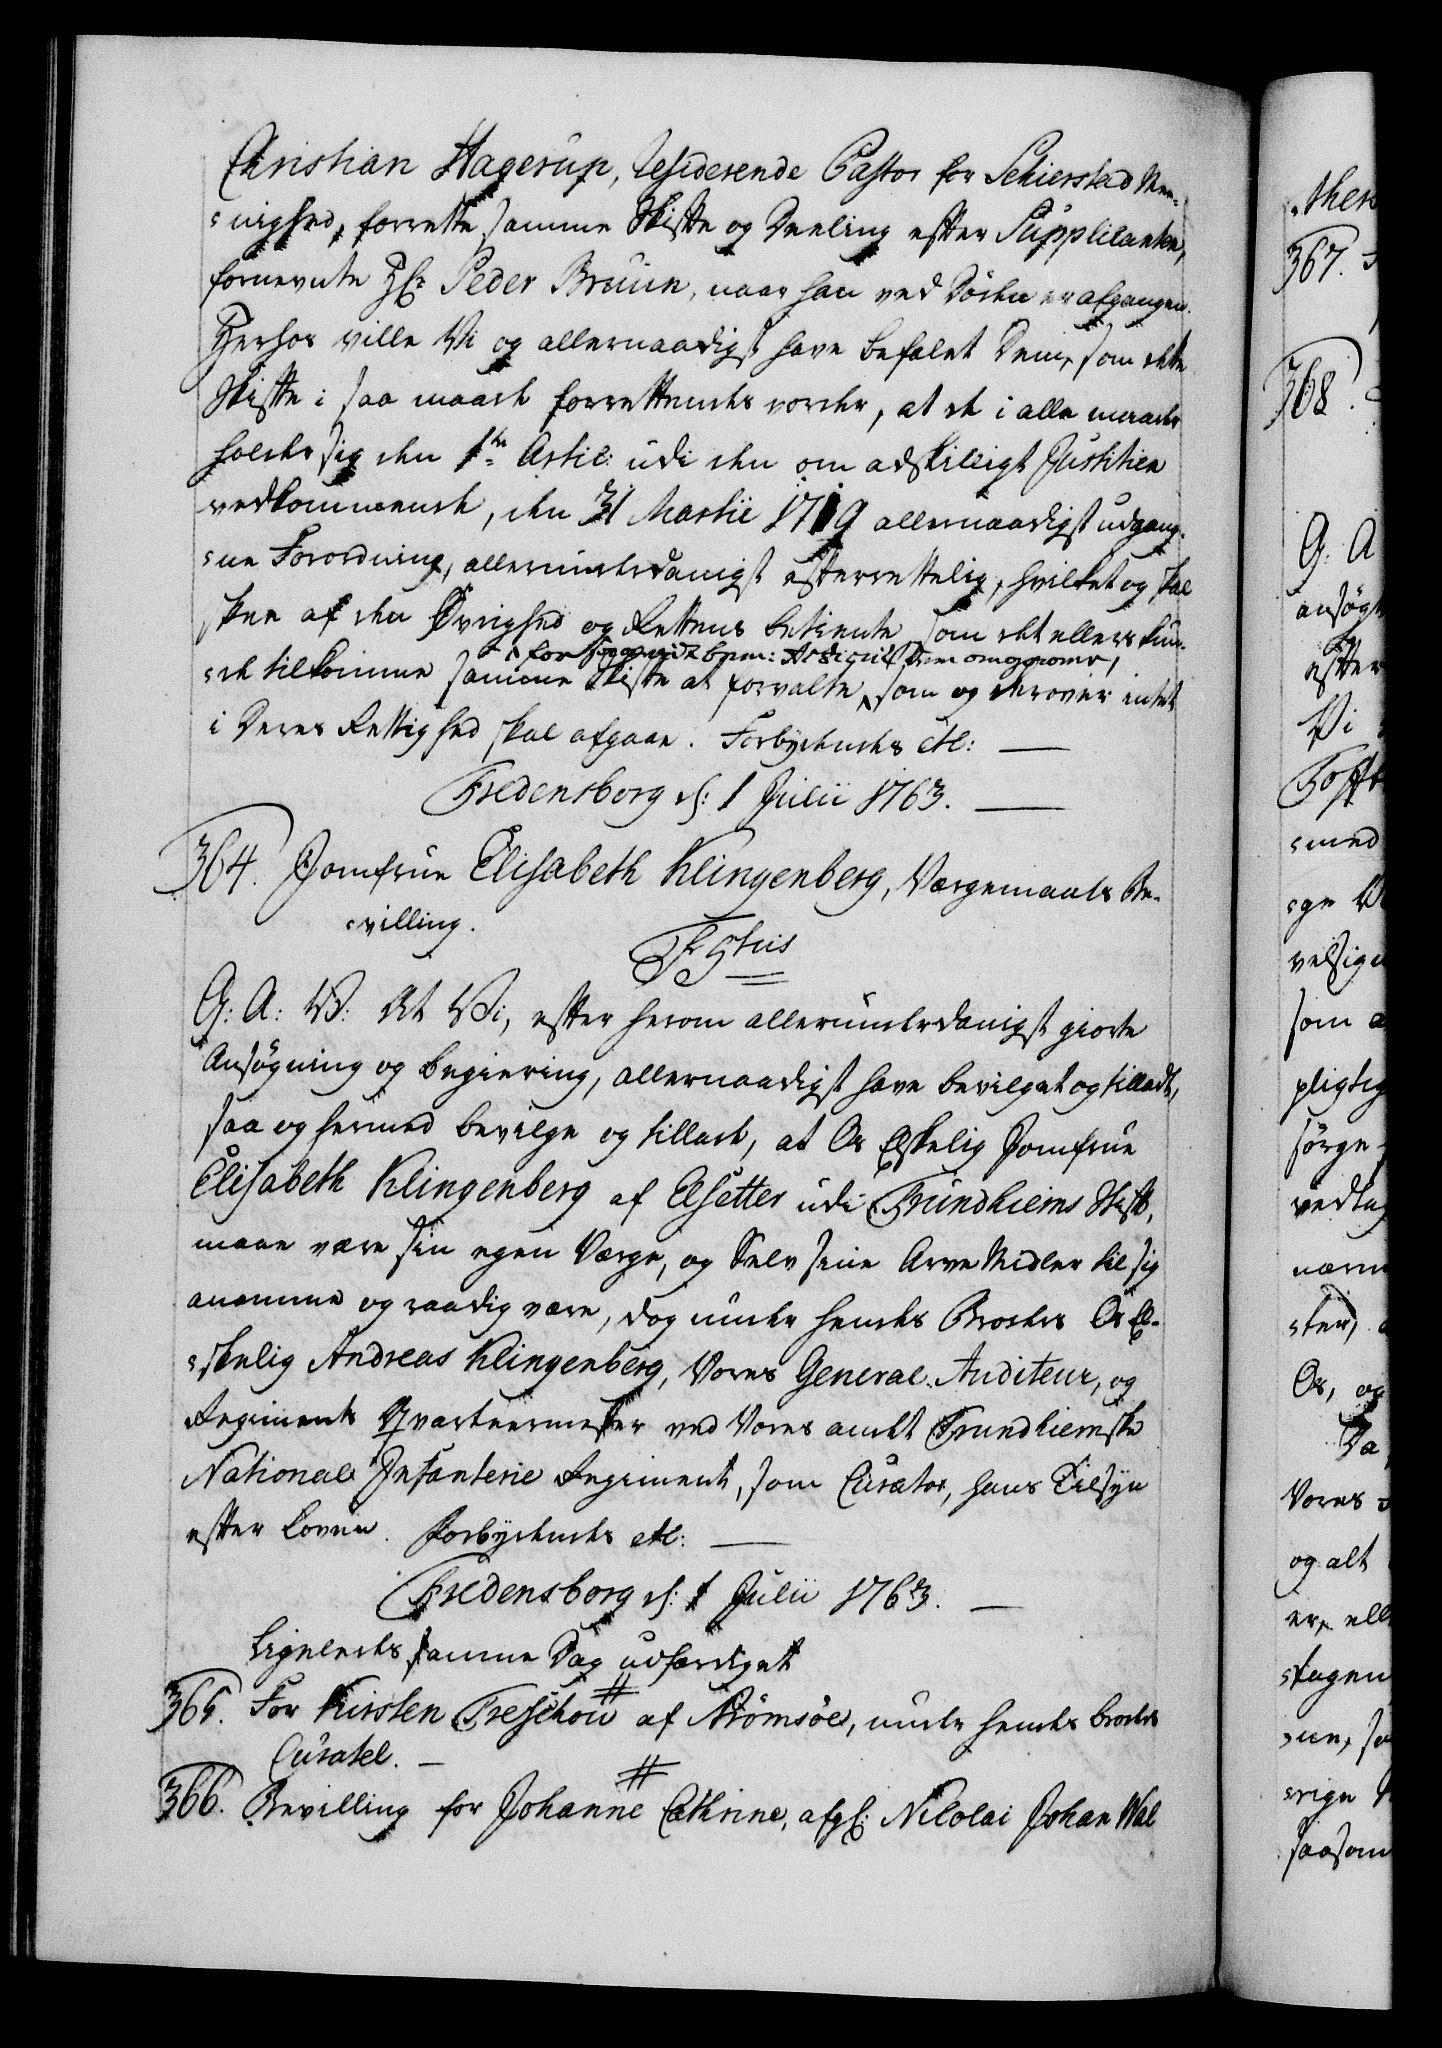 Christian Hagerup, Residerende Pastor for Schierstad Me-
nighed, forrette samme Skifte og Deeling efter Supplicanten,
fornevnte Hr: Peder Bruun, naar han ved Døden er afgangen.
Herhos ville Vi og allernaadigst have befalet Dem, som dette
Skifte i saa maade forrettendes vorder, at de i alle maader
holder sig den 1te Articl: udi den om adskilligt Justitien
vedkommende, den 31 Martii 1719 allernaadigst udgang-
ne Forordning, allerunderdanigst efterrettelig, hvilket og skal
skee af den Øvrighed og Rettens betiente som det ellers kun-
for saavidt bem: Articul dem omgaaer,
de tilkomme samme Skifte at forvalte, som og derover intet
i Deres Rettighed skal afgaae. Forbydendes etc:
Fredensborg d: 1 Julii 1763.
364. Jomfrue Elisabeth Klingenberg, Værgemaals Be-
villing.
Fr 5tus
G: A: V: At Vi, efter herom allerunderdanigst giorte
Ansøgning og begiering, allernaadigst have bevilget og tilladt,
saa og hermed bevilge og tillade, at Os Elskelig Jomfrue
Elisabeth Klingenberg af Elsetter udi Trundhiems Stift,
maae være sin egen Værge, og Selv sine Arve Midler til sig
anamme og raadig være, dog under hendes Broders Os El-
skelig Andreas Klingenberg, Vores General Auditeur, og
Regiments Qvarteermester ved Vores andet Trundhiemske
National Infanterie Regiment, som Curator, hans Tilsyn
efter Loven. Forbydendes etc:
Fredensborg d: 1 Julii 1763.
Ligeledes samme Dag udfærdiget
365. For Kirsten Treschow af Strømsøe, under hendes broders
Curatel.
366. Bevilling for Johanne Cathrine, afgl: Nicolai Johan Wal
367.
368.
G: A
ansøgt
efter
Vi
med
ge
som
pligtig
sørge
Os, og
Da
Vores
og alt
saasom